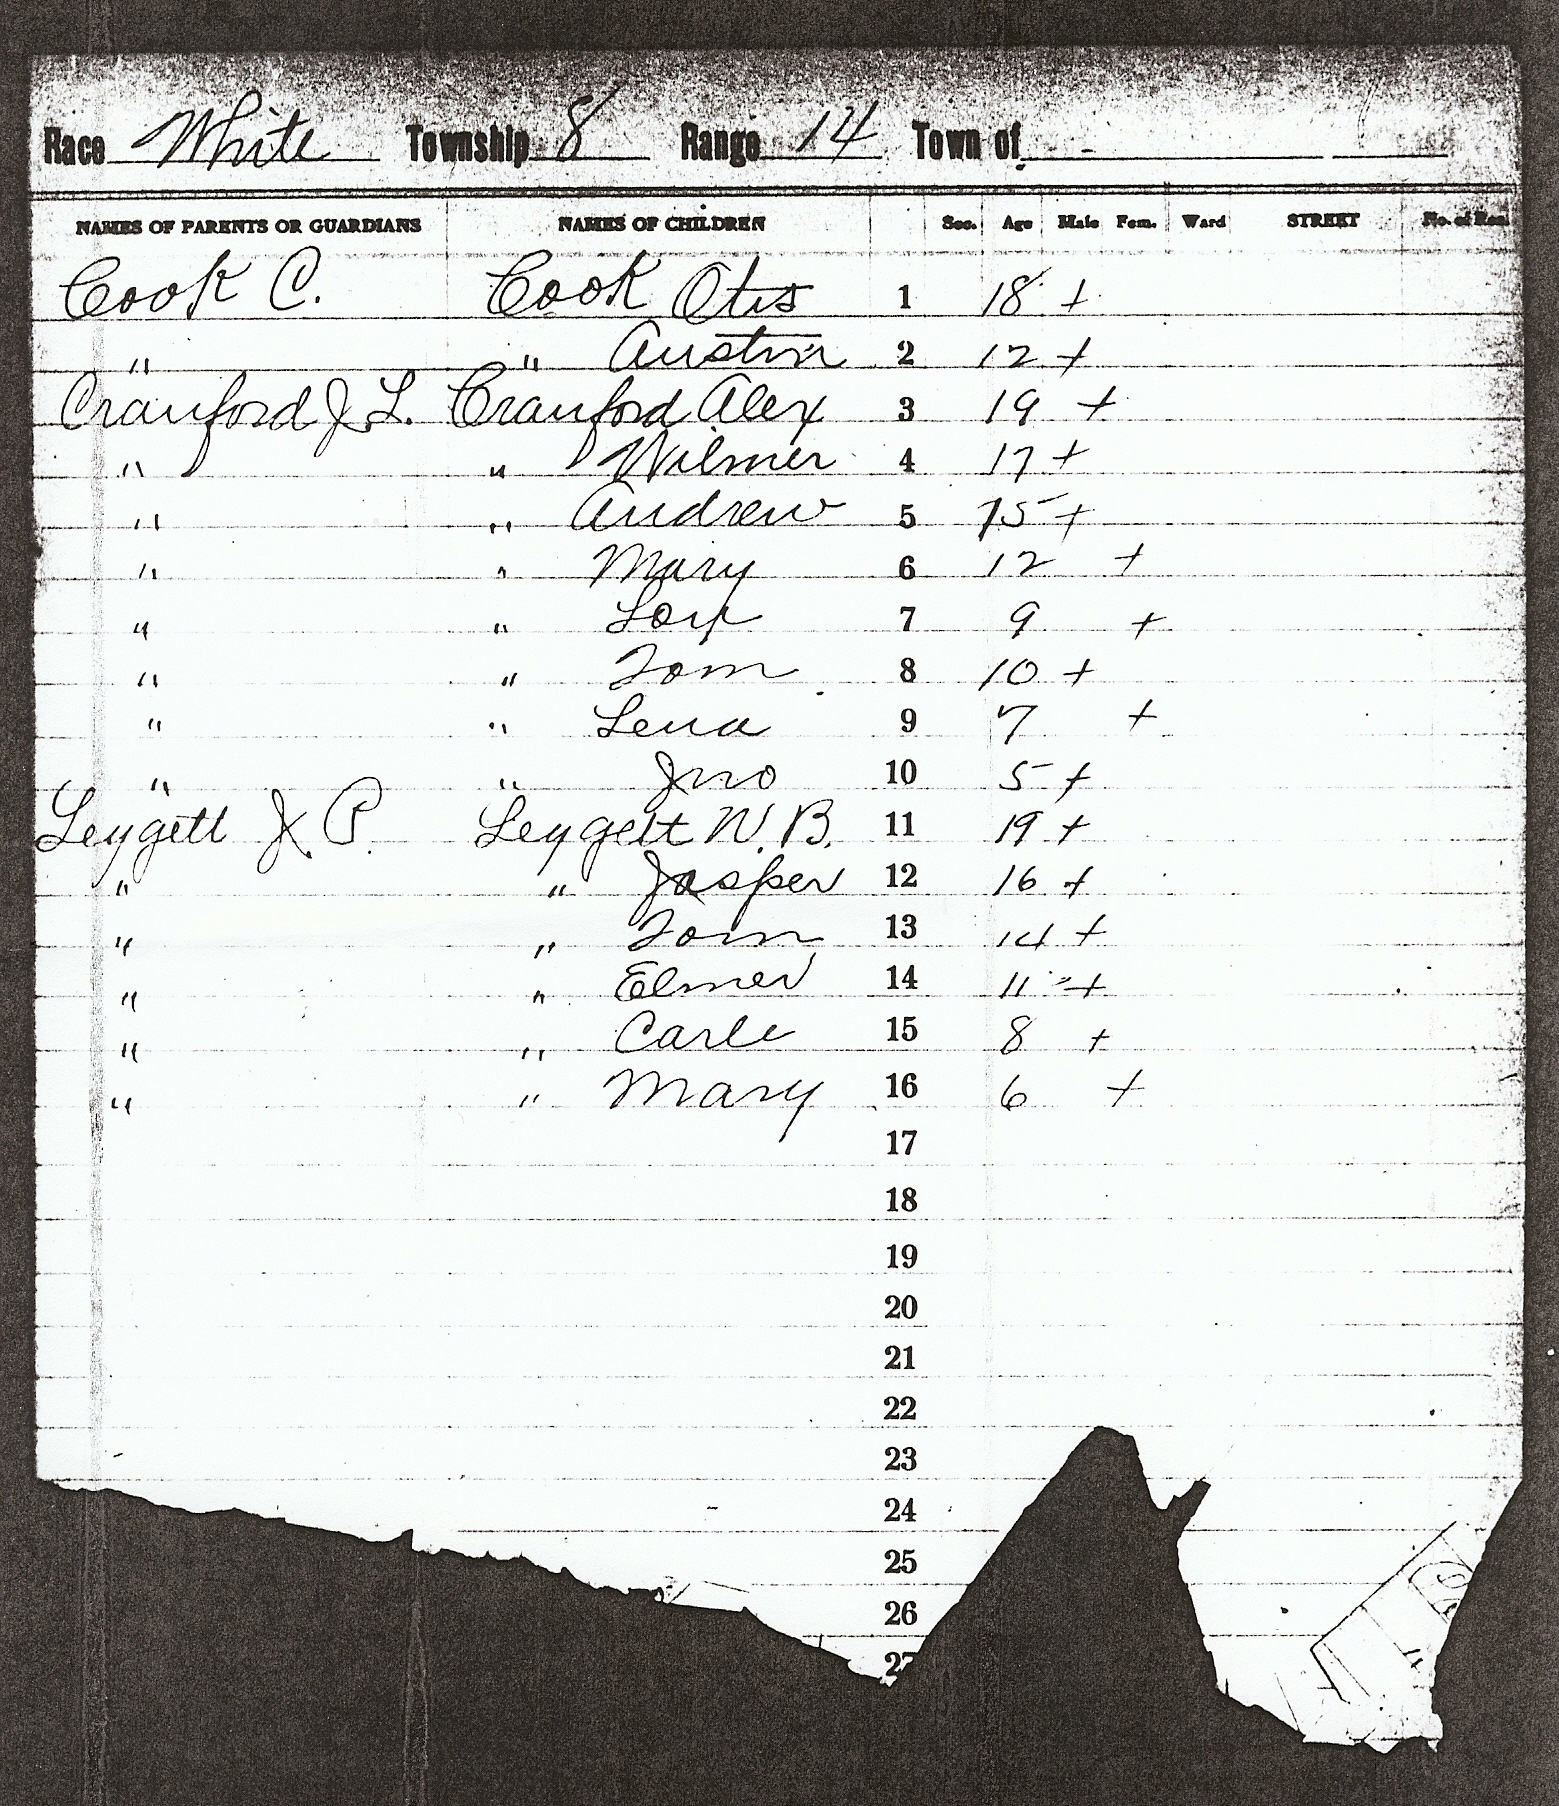 Race White Township 8 Range 14 Town of
NAMES OF PARENTS OR GUARDIANS NAMES OF CHILDREN Sec. Age Male Fem. Ward STREET No. of Res.
Cook C. Cook Otis 1 18 +
" " Austin 2 12 +
Cranford J L. Cranford Alex 3 19 +
" " Wilmer 4 17 +
" " Andrew 5 15 +
" " Mary 6 12 +
" " 7 9 +
" " Tom 8 10 +
" " Lena 9 7 +
" " Jno 10 5 +
Leggett J. P. Leggett W. B. 11 19 +
" " Jasper 12 16 +
" " Tom 13 14 +
" " Elmer 14 11 +
" " Carle 15 8 +
" " Mary 16 6 +
17
18
19
20
21
22
23
24
25
26
27